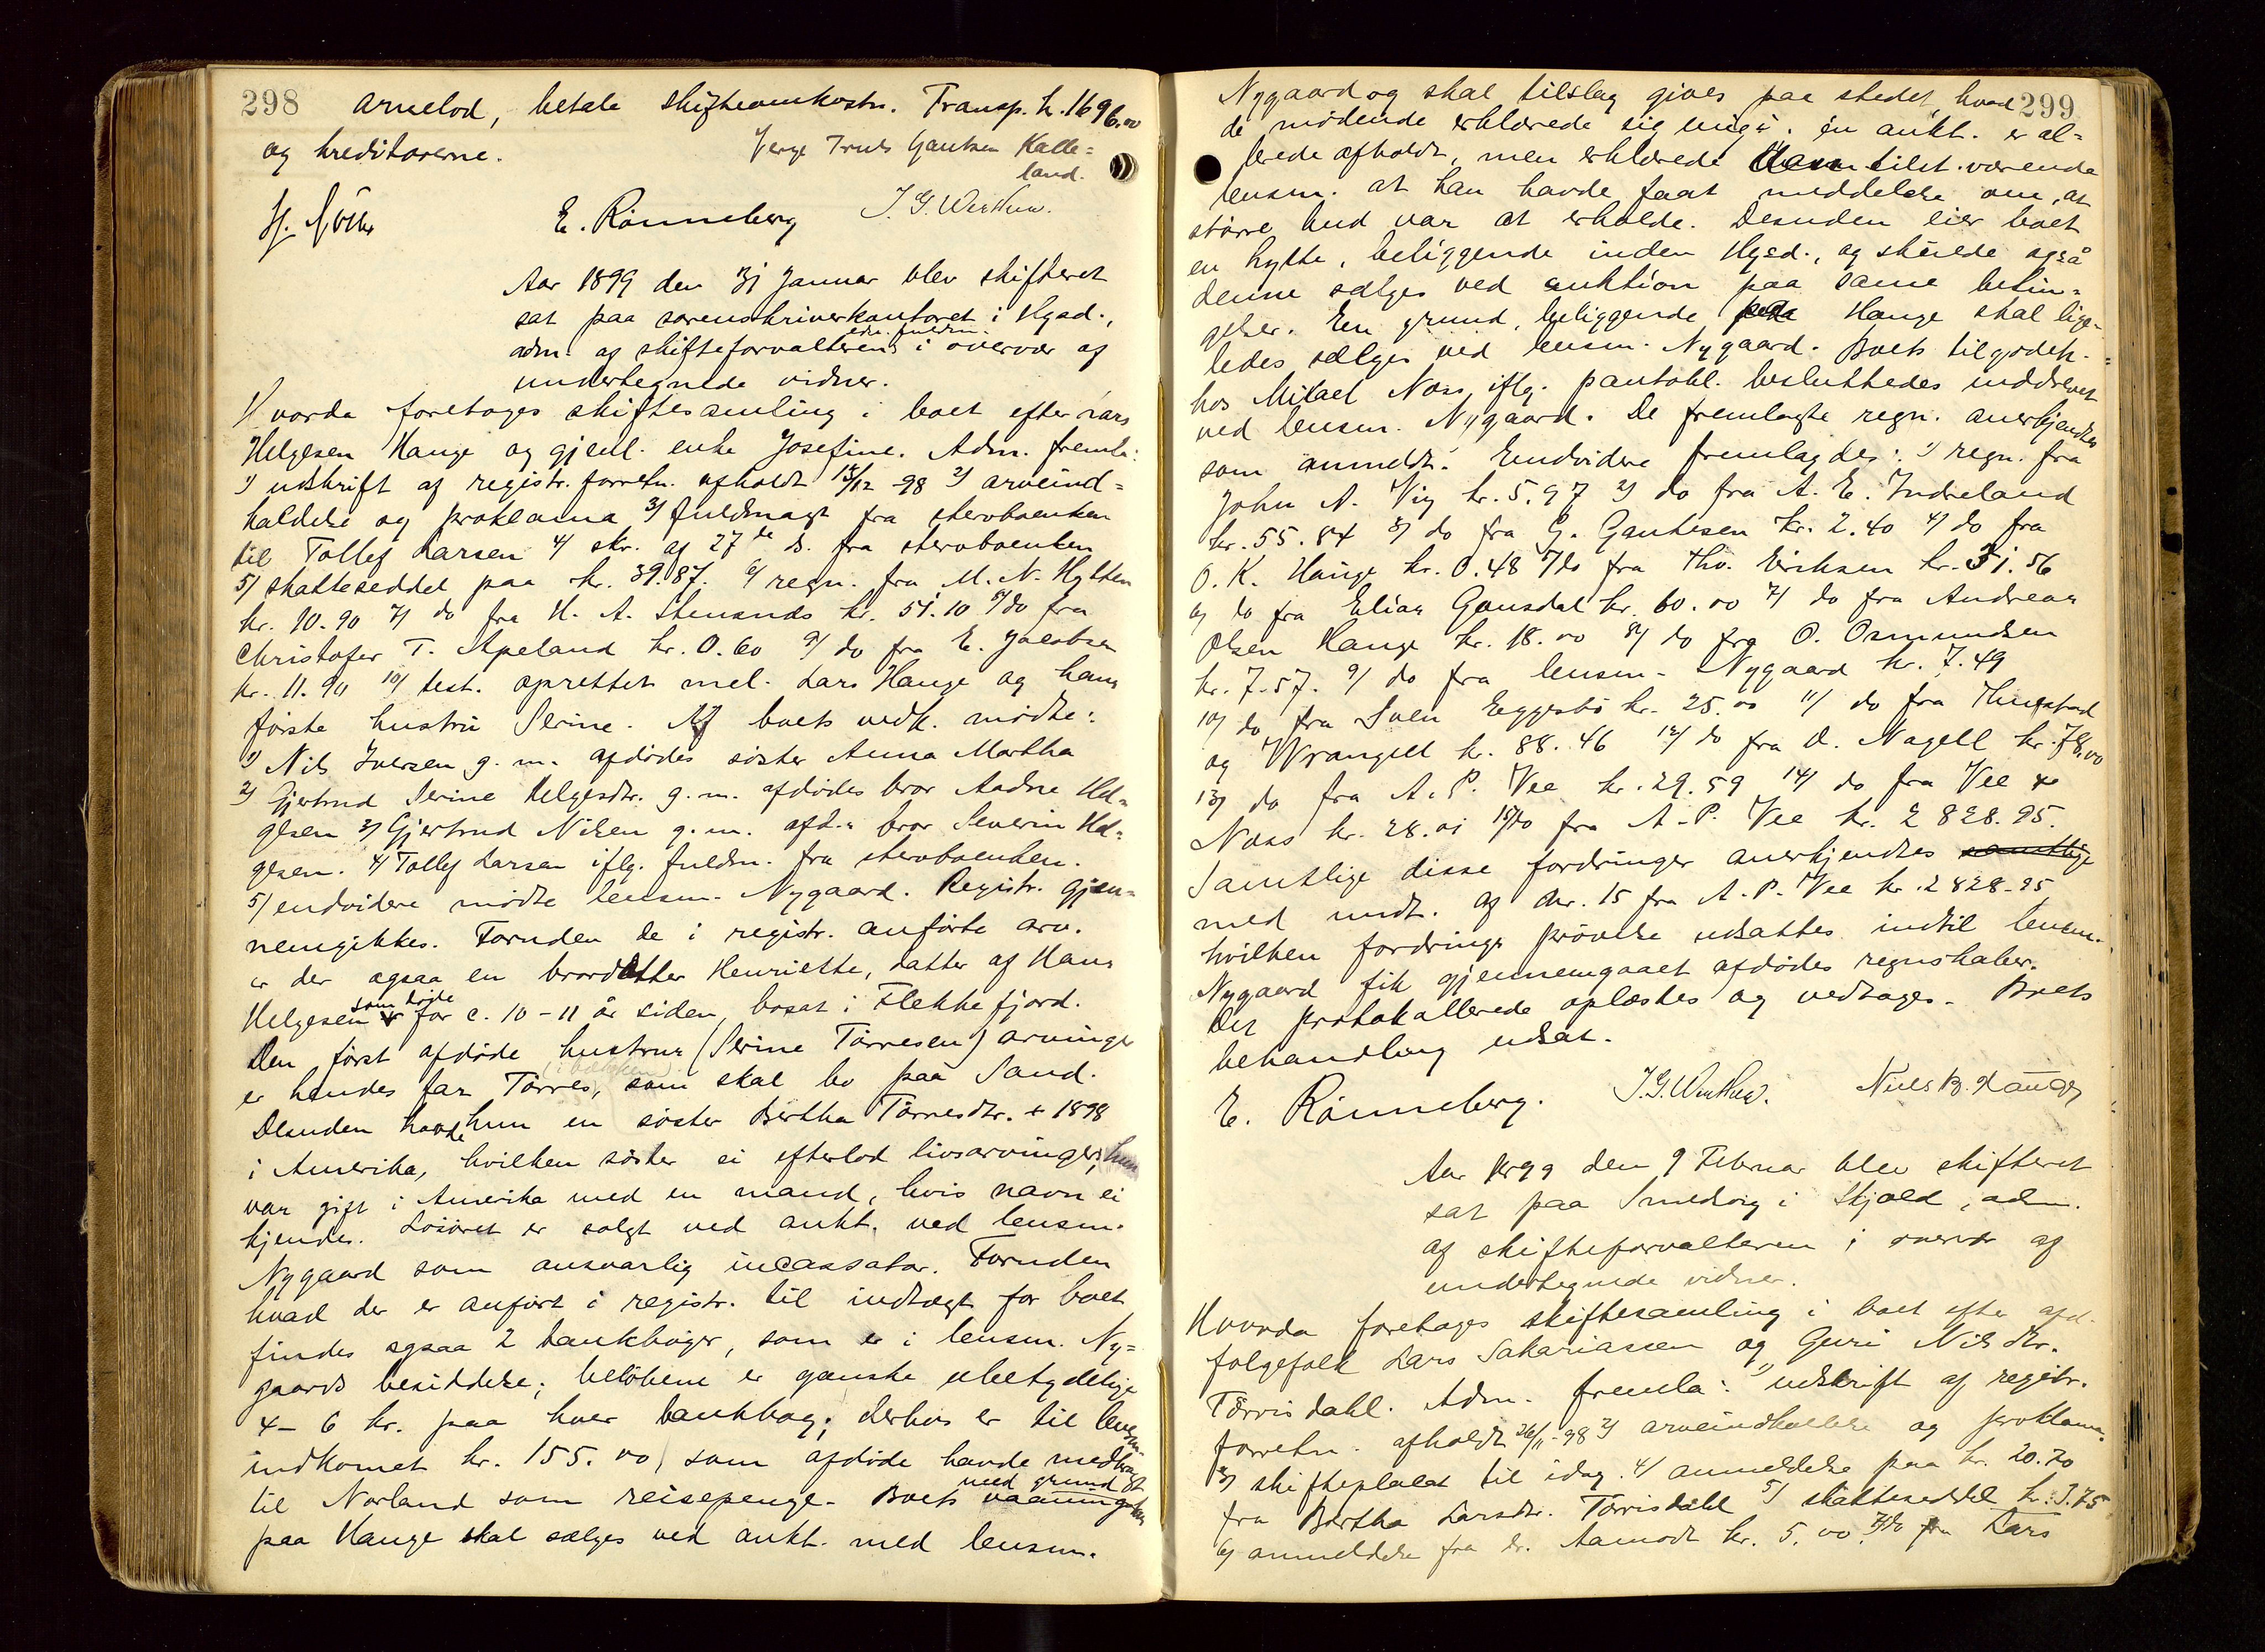 298
arvelod, betale skifteomkostn. Transp. kr. 1696.00
og kreditorerne.
Verge Truls Gautsen Kalle=
land.
E. Rønneberg J. G. Werthun.
Aar 1899 den 31 Januar blev skifteret
sat paa sorenskriverkontoret i Hgsd.,
edsv. fuldm.
adm. af skifteforvalterens i overvær af
undertegnede vidner.
Hvorda foretoges skiftesamling i boet efter Lars
Helgesen Hauge og gjenl. enke Josefine. Adm. fremla:
1) udskrift af registr. forretn. afholdt 13/12 -98 2) arveind=
kaldelse og proklama 3) fuldmagt fra sterboenken
til Tollef Larsen 4) skr. af 27de ds. fra sterboenken
5) skatteseddel paa kr. 39.87. 6) regn. fra M. N. Hytten
kr. 10.90 7) do fra H. A. Stensnds kr. 51.10 8) do fra
Christofer T. Apeland kr. 0.60 9) do fra E. Jacobsen
kr. 11.90 10) test. oprettet mel. Lars Hauge og hans
første hustru Serine. Af boets vedk. mødte:
1) Nils Iversen g. m. afdødes søster Anna Martha
2) Gjertrud Serine Helgesdtr. g. m. afdødes bror Aadne Hel=
gesen 3) Gjertrud Nilsen g. m. afd.s bror Severin Hel=
gesen. 4) Tollef Larsen iflg. fuldm. fra sterboenken.
5) endvidere mødte lensm. Nygaard. Registr. gjen=
nemgikkes. Foruden de i registr. anførte arv.
er der ogsaa en brordatter Henriette, datter af Hans
som døde
Helgesen for c. 10-11 år siden, bosat i Flekkefjord.
Den først afdøde hustrus (Serine Tørresen) arvinger
(i bækken)
er hendes far Tørres, som skal bo paa Sand.
Desuden havde hun en søster Bertha Tørresdtr. + 1898
i Amerika, hvilken søster ei efterlod livsarvinger, hun
var gift i Amerika med en mand, hvis navn ei
kjendes. Løsøret er solgt ved aukt. ved lensm.
Nygaard som ansvarlig incassator. Foruden
hvad der er anført i registr. til indtægt for boet
findes ogsaa 2 bankbøger, som er i lensm. Ny=
gaards besiddelse; beløbene er ganske ubetydelige
4-6 kr. paa hver bankbog; derhos er til lensm.
indkomet kr. 155.00, som afdøde havde medbragt
til Norland som reisepenge. Boets
med grund
vaaningshus
paa Hauge skal sælges ved aukt. med lensm.
299
Nygaard og skal tilslag gives paa stedet, hvad
de mødende erklærede sig enig i. én aukt. er al=
lerede afholdt, men erklærede den tilst. værende
lensm. at han havde faat meddelelse om, at
større bud var at erholde. Desuden eier boet
en hytte, beliggende inden Hgsd., og skulde også
denne sælges ved auktion paa same betin=
gelser. En grund, beliggende paa Hauge skal lige=
ledes sælges ved lensm. Nygaard. Boets tilgodeh.
hos Mikael Næss iflg. pantobl. besluttedes inddrevet
ved lensm. Nygaard. De fremlagte regn. anerkjendtes
som anmeldt. Endvidere fremlagdes: 1) regn. fra
John N. Vig kr. 5.97 2) do fra A. E. Indreland
kr. 55.84 3) do fra G. Gautesen kr. 2.40 4) do fra
O. K. Hauge kr. 0.48 5) do fra Tho. Eriksen kr. 31.56
6) do fra Elias Gausdal kr. 60.00 7) do fra Andreas
Olsen Hauge kr. 18.00 8) do fra O. Osmundsen
kr. 7.57. 9) do fra lensm. Nygaard kr. 7.49
10) do fra Sven Eggesbø kr. 25.00 11) do fra Thuestad
og Wrangell kr. 88.46 12) do fra O. Nagell kr. 78.00
13) do fra A. P. Vee kr. 29.59 14) do fra Vee &
Næss kr. 28.01 15) do fra A. P. Vee kr. 2828.95.
Samtlige disse fordringer anerkjendtes samtlige
med undt. af nr. 15 fra A. P. Vee kr. 2828.95
hvilken fordrings prøvelse udsattes indtil lensm.
Nygaard fik gjennemgaaet afdødes regnskaber.
Det protokollerede oplæstes og vedtoges. Boets
behandling udsat.
E. Rønneberg. J. G. Werthun. Niels B. Hauge
Aar 1899 den 9 Februar blev skifteret
sat paa Smedvig i Skjold, adm.
af skifteforvalteren i overvær af
undertegnede vidner.
Hvorda foretoges skiftesamling i boet efter afd.
følgefolk Lars Sakariassen og Guri Nilsdtr.
Tørrisdahl. Adm. fremla: 1) udskrift af registr.
forretn. afholdt 26/11-98 2) arveindkaldelse og proklama.
3) skifteplakat til idag. 4) anmeldelse paa kr. 20.70
fra Bertha Larsdtr. Tørrisdahl 5) skatteseddel kr. 3.75
6) anmeldelse fra dr. Aamodt kr. 5.00. 7) do fra Lars